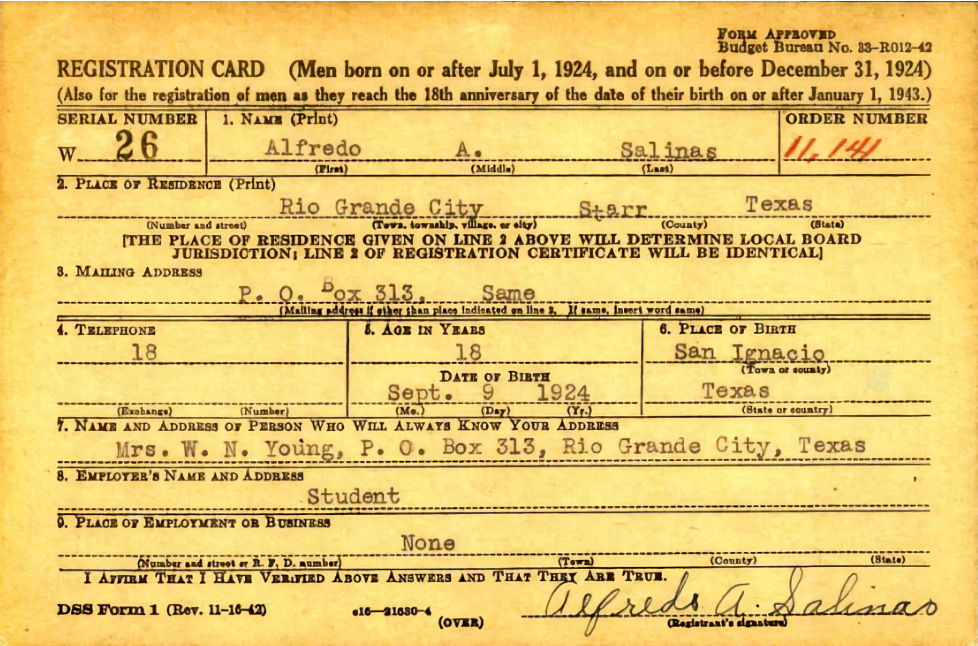 FORM APPROVED
Budget Bureau No. 33-R012-42
REGISTRATION CARD (Men born on or after July 1, 1924, and on or before December 31, 1924)
(Also for the registration of men as they reach the 18th anniversary of the date of their birth on or after January 1, 1943.)
SERIAL NUMBER 1. NAME (Print) ORDER NUMBER
W 26 Alfredo A. Salinas 11,141
(First) (Middle) (Last)
2. PLACE OF RESIDENCE (Print)
Rio Grande City Starr Texas
(Number and street) (Town, township, village, or city) (County) (State)
[THE PLACE OF RESIDENCE GIVEN ON LINE 2 ABOVE WILL DETERMINE LOCAL BOARD
JURISDICTION; LINE 2 OF REGISTRATION CERTIFICATE WILL BE IDENTICAL]
3. MAILING ADDRESS
P. O. Box 313, Same
(Mailing address if other than place indicated on line 2. If same, insert word same)
4. TELEPHONE 5. AGE IN YEARS 6. PLACE OF BIRTH
18 18 San Ignacio
(Town or county)
DATE OF BIRTH
Sept. 9 1924 Texas
(Exchange) (Number) (Mo.) (Day) (Yr.) (State or country)
7. NAME AND ADDRESS OF PERSON WHO WILL ALWAYS KNOW YOUR ADDRESS
Mrs. W. N. Young, P. O. Box 313, Rio Grande City, Texas
8. EMPLOYER'S NAME AND ADDRESS
Student
9. PLACE OF EMPLOYMENT OR BUSINESS
None
(Number and street or R. F. D. number) (Town) (County) (State)
I AFFIRM THAT I HAVE VERIFIED ABOVE ANSWERS AND THAT THEY ARE TRUE.
DSS Form 1 (Rev. 11-16-42) e16—21630-4 (OVER) Alfredo A. Salinas
(Registrant's signature)